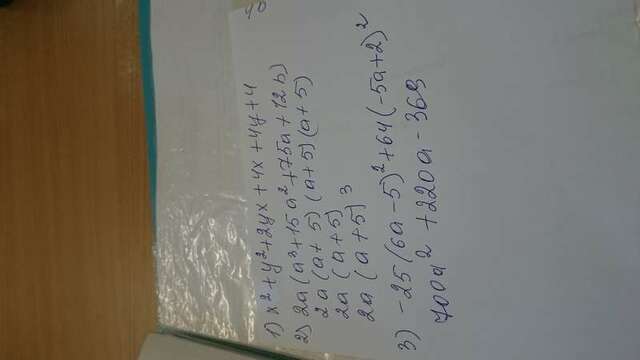 1) x²+y²+2yx+4x+4y+4
2) 2a(a³+15a²+75a+12b)
2a(a+5)(a+5)(a+5)
2a(a+5)
2a(a+5)³
3) -25(6a-5)²+64(-5a+2)²
700a²+220a-369